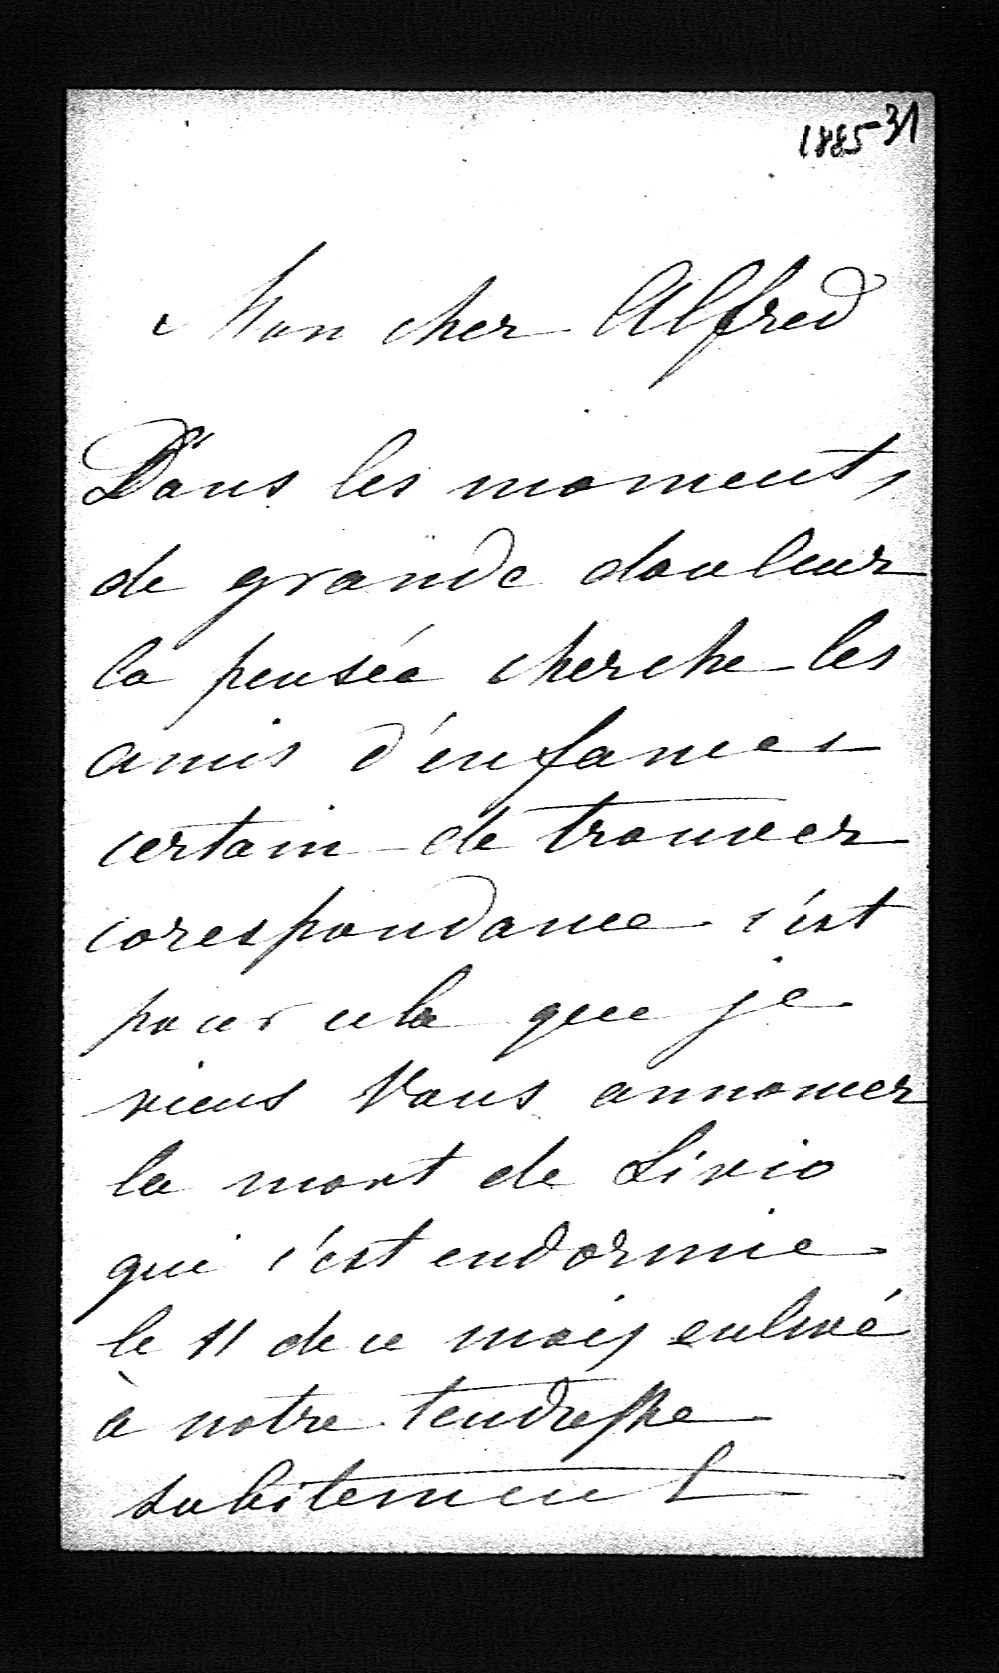 1885-31
Mon cher Alfred
Dans les moments
de grande douleur
la pensée cherche les
amis d'enfances
certain de trouver
corespondance c'est
pour cela que je
viens Vous annoncer
la mort de Livio
qui s'est endormie
le 11 de ce mois enlevé
à notre tendresse
subitement